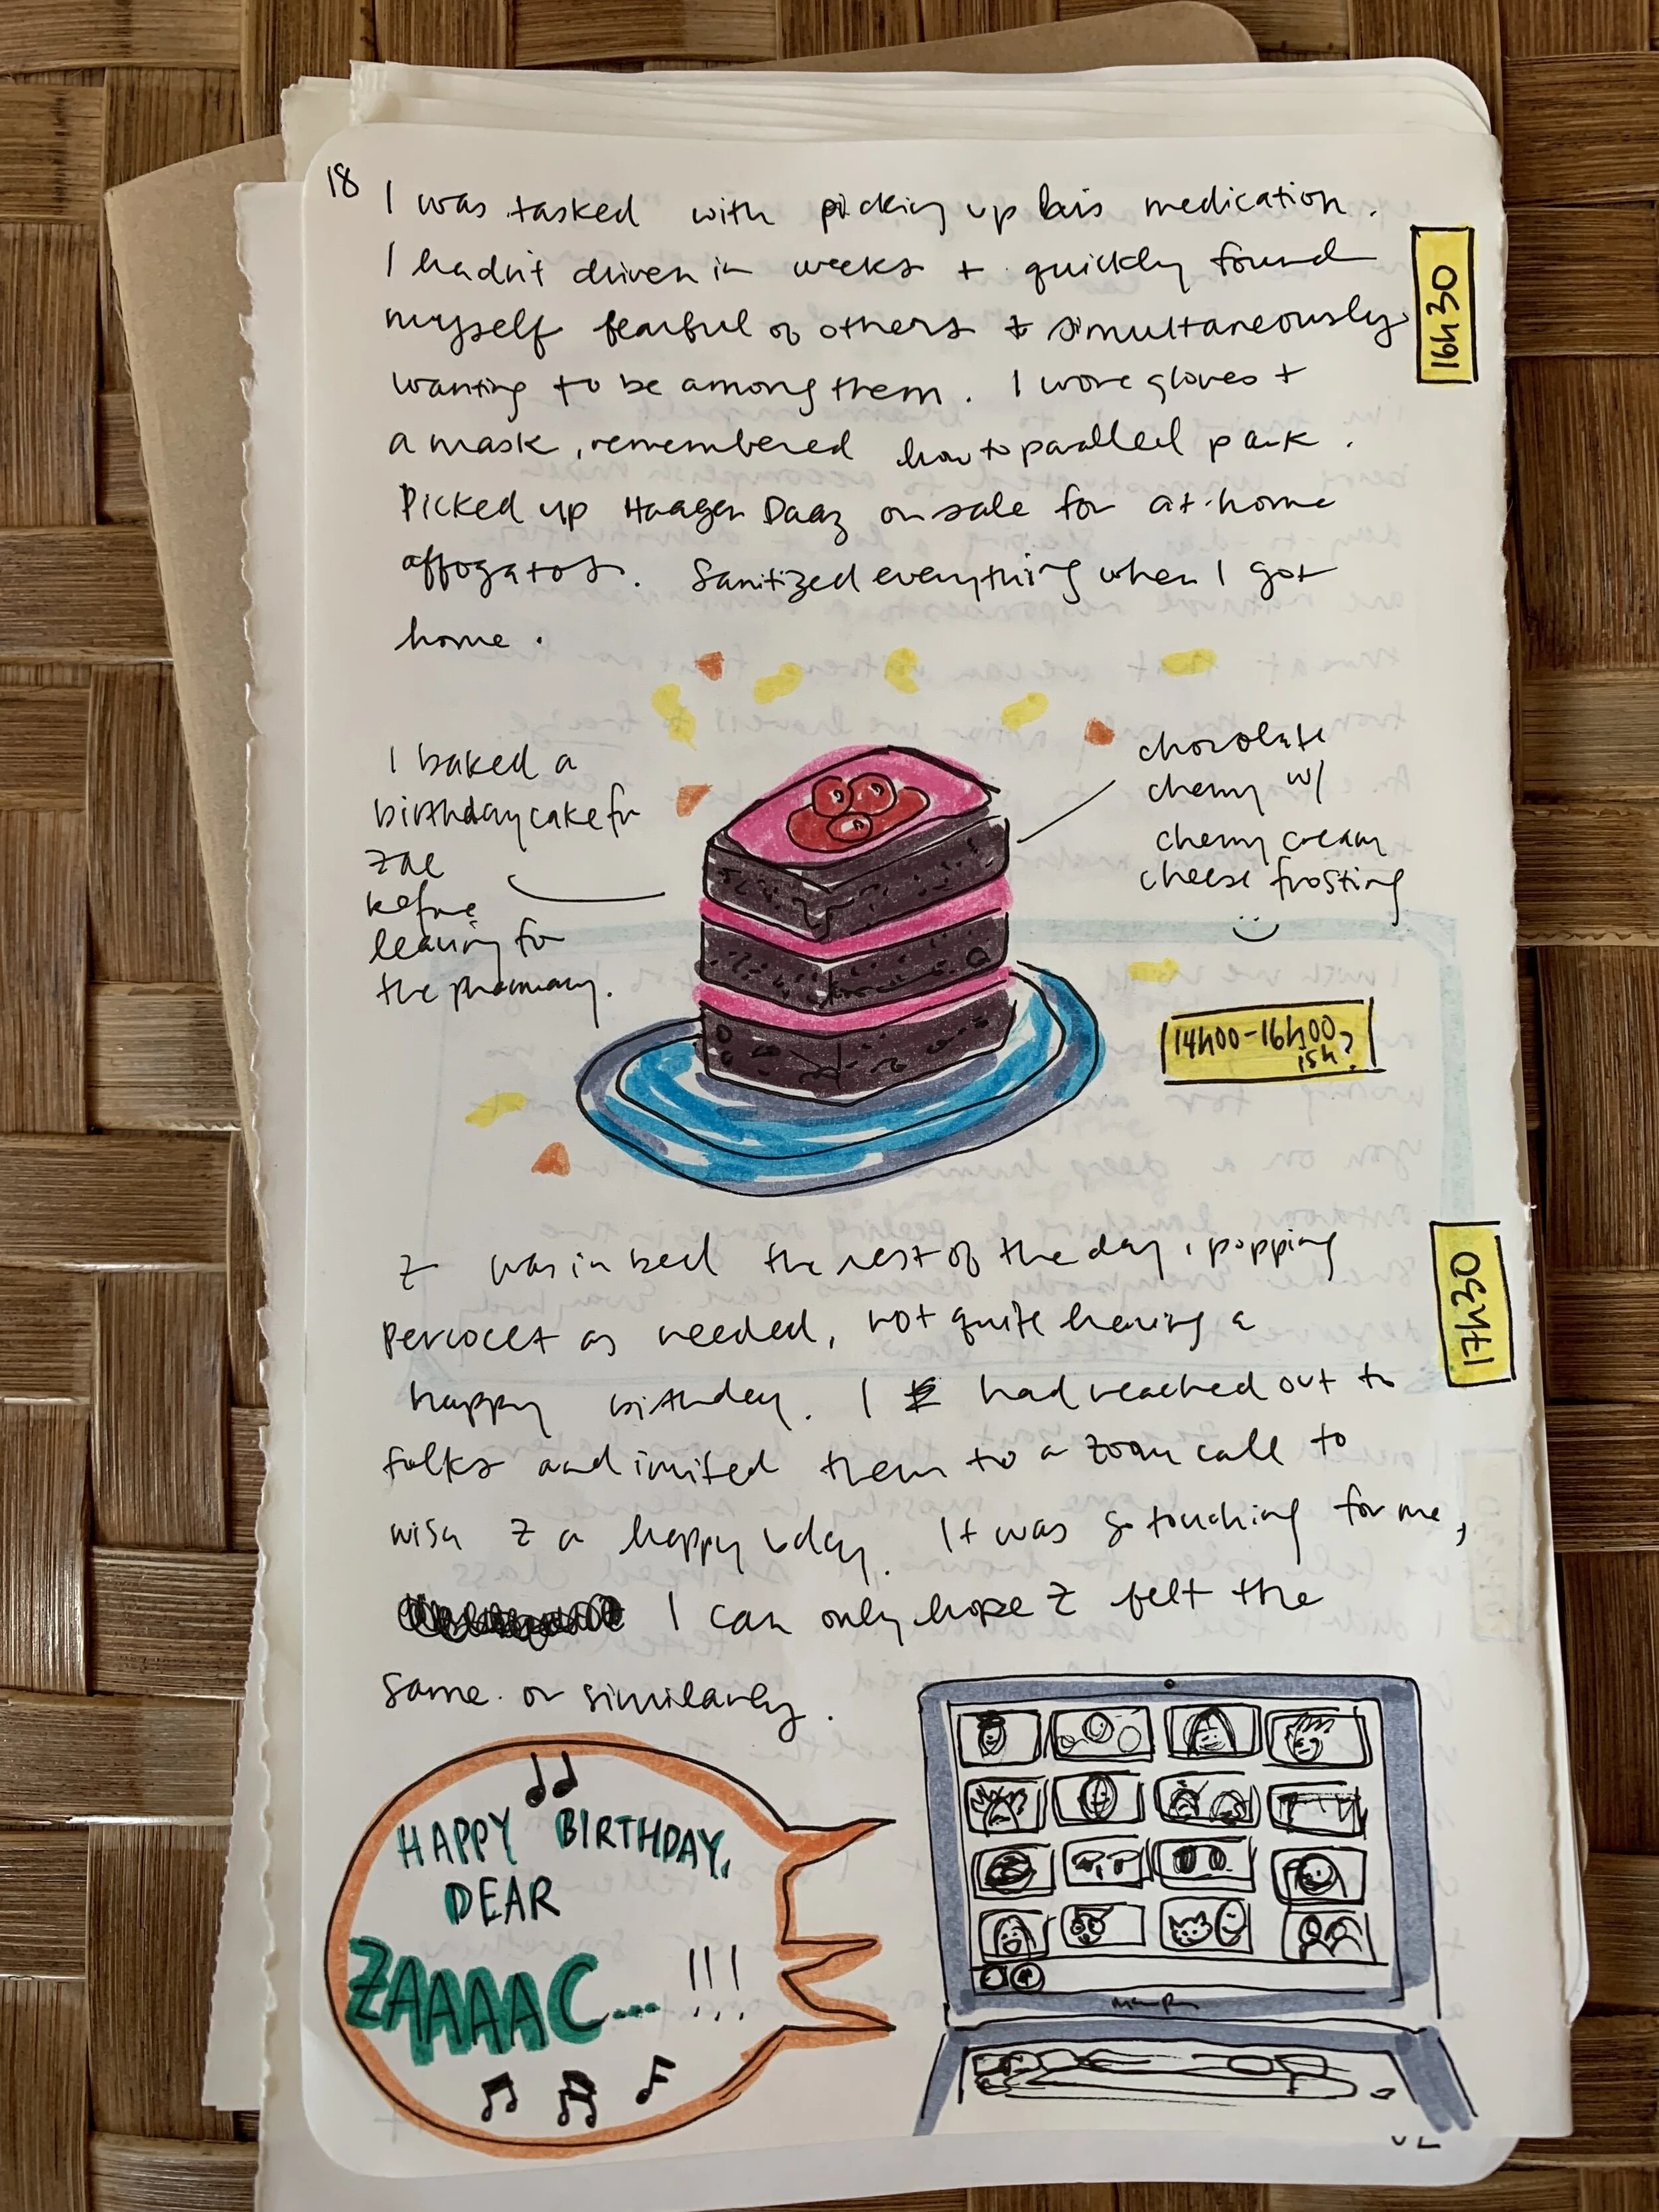 18
I was tasked with picking up his medication.
I hadn't driven in weeks + quickly found
myself fearful of others + simultaneously
wanting to be among them. I wore gloves +
a mask, remembered how to parallel park.
Picked up Haagen Daaz on sale for at-home
affogatos. Sanitized everything when I got
home.
16h30
I baked a
birthday cake for
Zac
before
leaving for
the pharmacy.
chocolate
cherry w/
cherry cream
cheese frosting
14h00-16h00
15h?
Z was in bed the rest of the day, popping
percocet as needed, not quite having a
happy birthday. I had reached out to
folks and invited them to a zoom call to
wish Z a happy bday. It was so touching for me,
I can only hope Z felt the
same. or similarly.
17h30
HAPPY BIRTHDAY,
DEAR
ZAAAAC... !!!